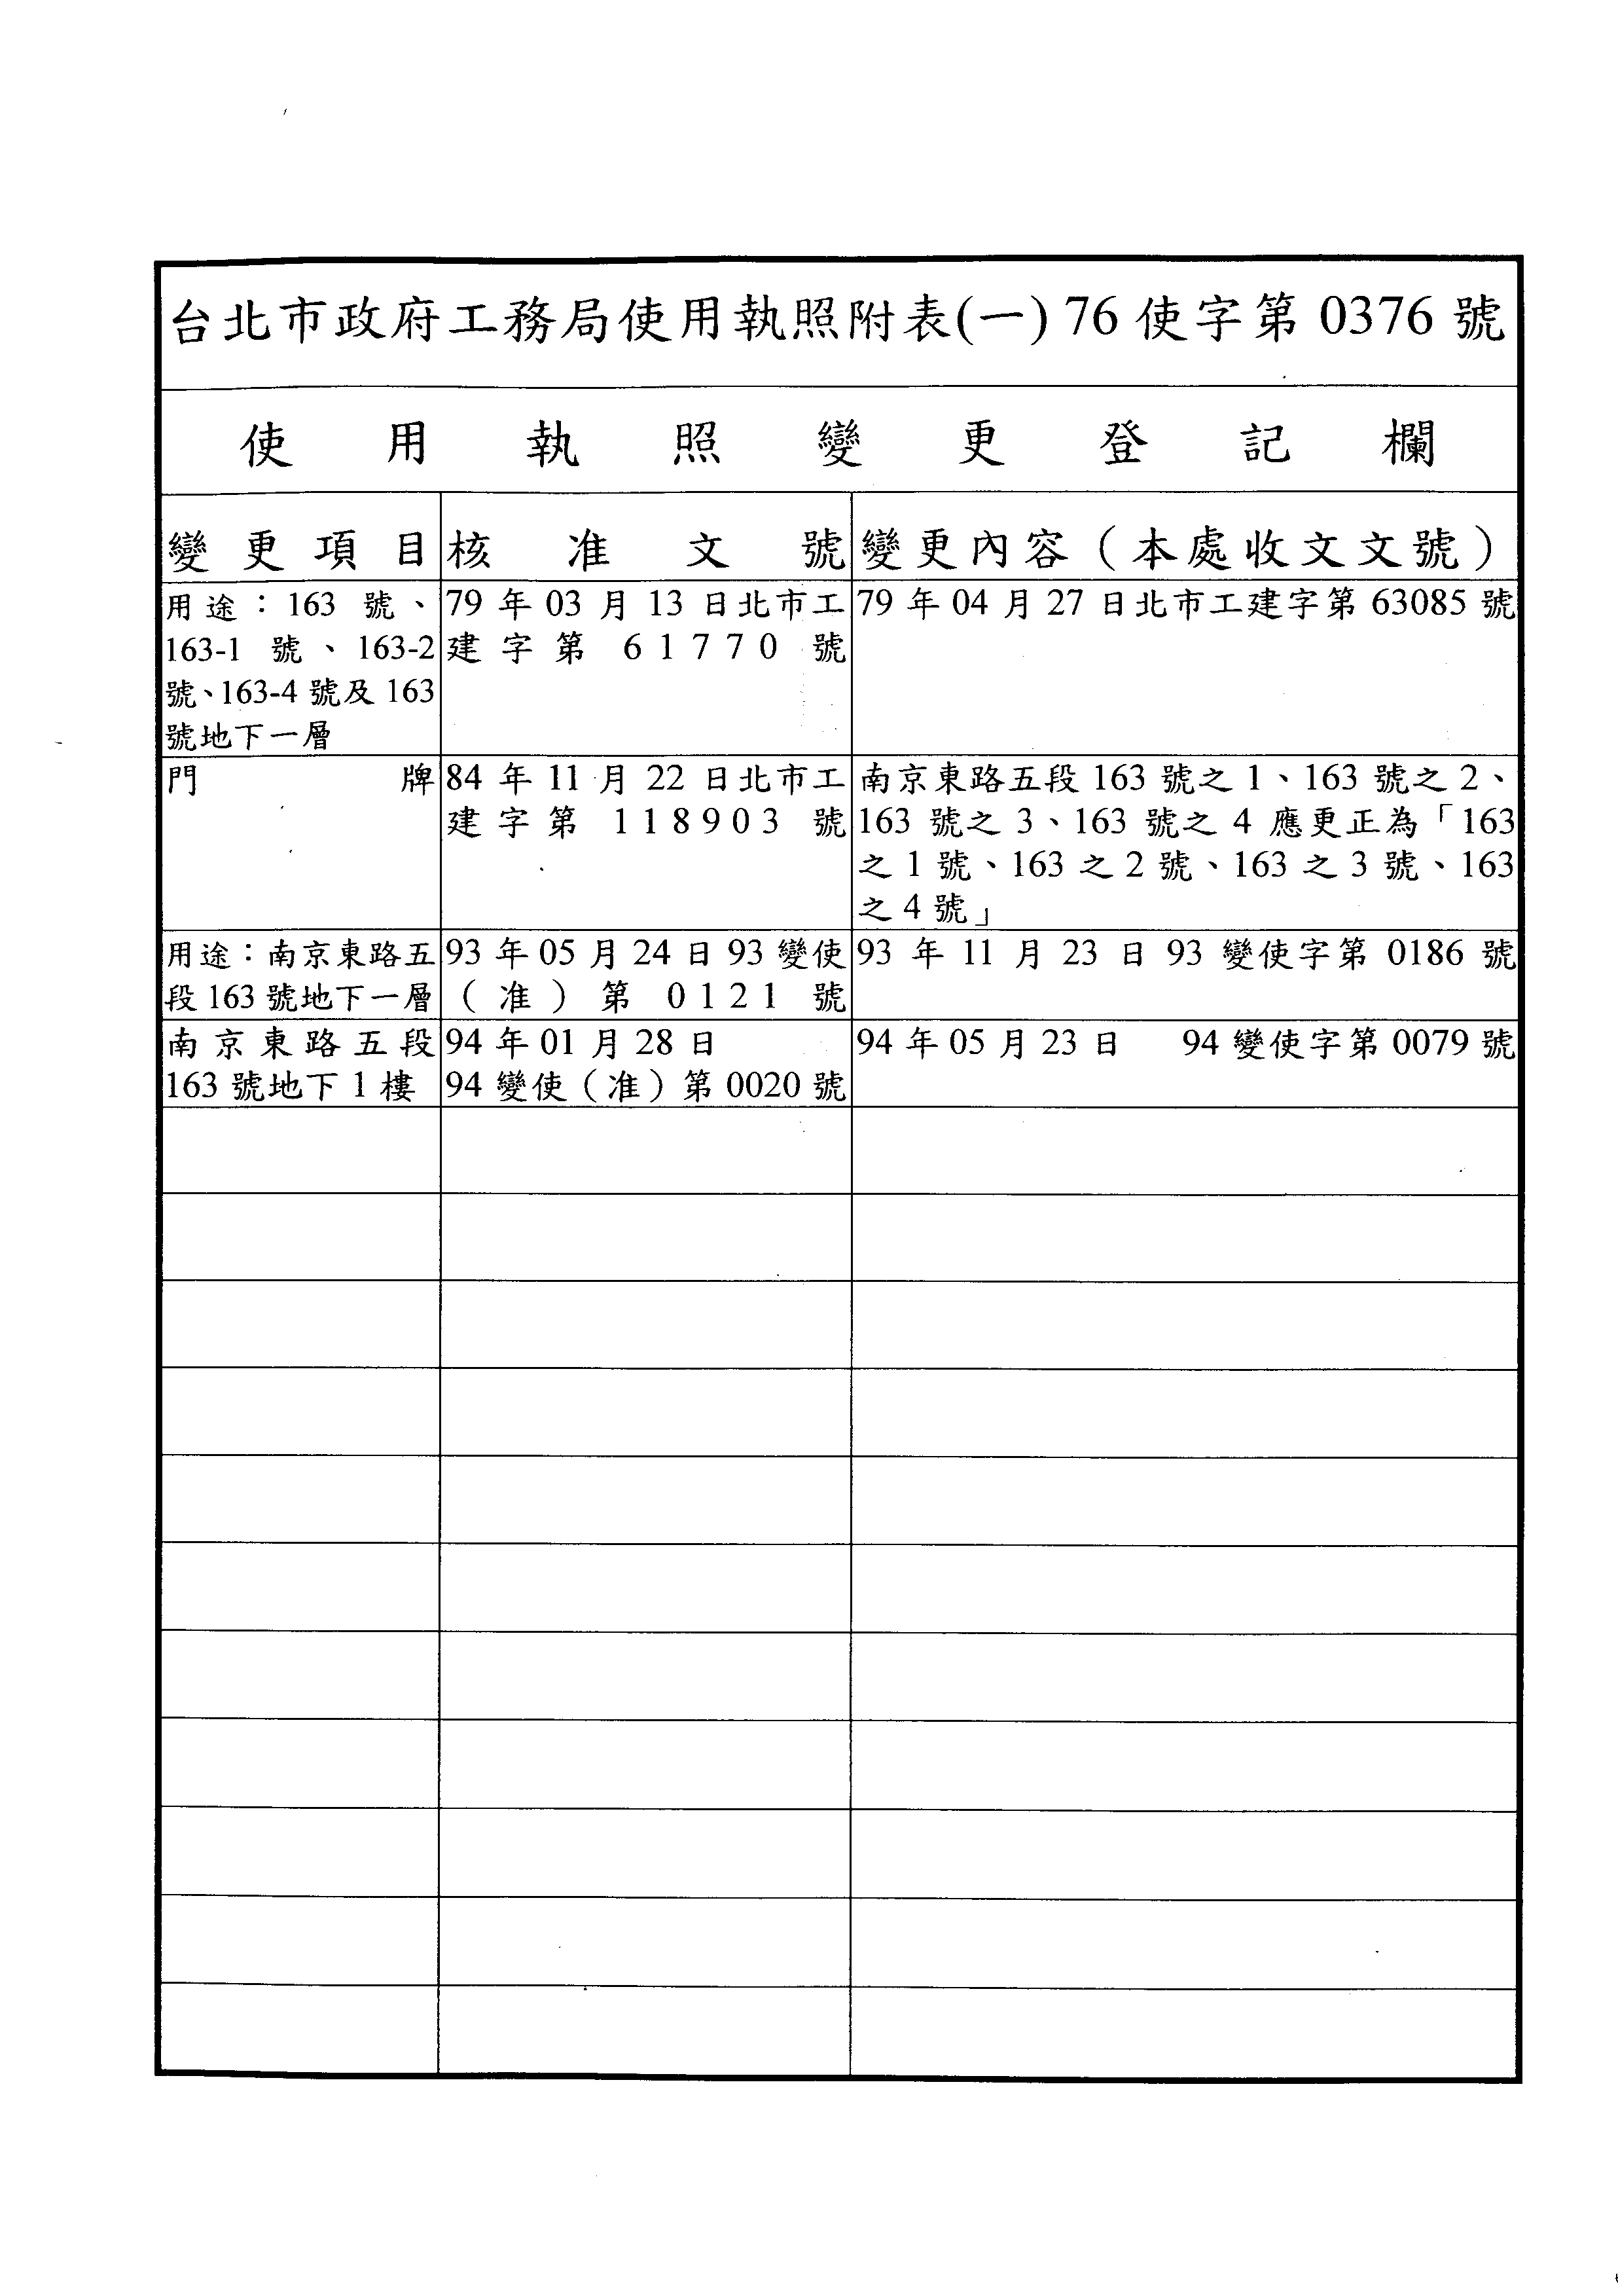 台北市政府工務局使用執照附表(一) 76 使字第 0376 號
使用執照變更登記欄
變更項目
核准文號
變更內容（本處收文文號）
用途：163 號、
163-1 號、163-2
號、163-4 號及 163
號地下一層
79 年 03 月 13 日北市工
建字第 61770 號
79 年 04 月 27 日北市工建字第 63085 號
門牌
84 年 11 月 22 日北市工
建字第 118903 號
南京東路五段 163 號之 1、163 號之 2、
163 號之 3、163 號之 4 應更正為「163
之 1 號、163 之 2 號、163 之 3 號、163
之 4 號」
用途：南京東路五
段 163 號地下一層
93 年 05 月 24 日 93 變使
（准）第 0121 號
93 年 11 月 23 日 93 變使字第 0186 號
南京東路五段
163 號地下 1 樓
94 年 01 月 28 日
94 變使（准）第 0020 號
94 年 05 月 23 日 94 變使字第 0079 號